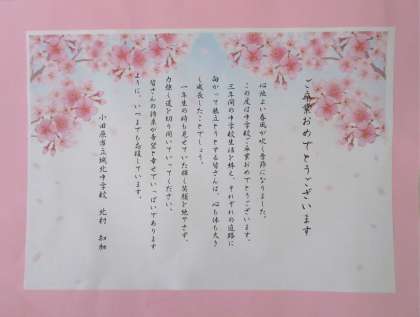 ご卒業おめでとうございます
心地よい春風が吹く季節になりました。
この度は中学校ご卒業おめでとうございます。
三年間の中学校生活を終え、それぞれの進路に
向かって旅立とうとする皆さんは、心も体も大き
く成長したことでしょう。
一年生の時も見せていた輝く笑顔を絶やさず、
力強く道を切り開いていってください。
皆さんの将来が希望と幸せでいっぱいであります
ように、いつまでも応援しています。
小田原市立城北中学校 北村